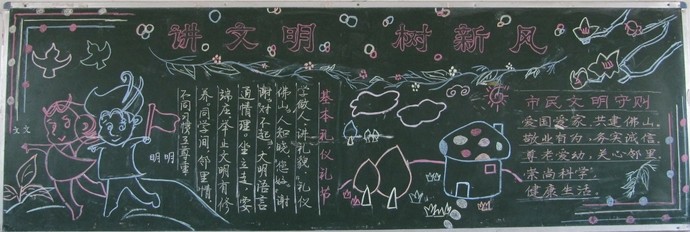 讲文明 树新风
文文
明明
基本礼仪礼节
学做人,讲礼貌,礼仪
佛山人知晓,您好,谢
谢,对不起,文明语言
道情理,坐立走,要
端庄,举止文明有修
养,同学间,邻里情
不同习惯互尊重
市民文明守则
爱国爱家,共建佛山,
敬业有为,务实诚信,
尊老爱幼,关心邻里,
崇尚科学,
健康生活.